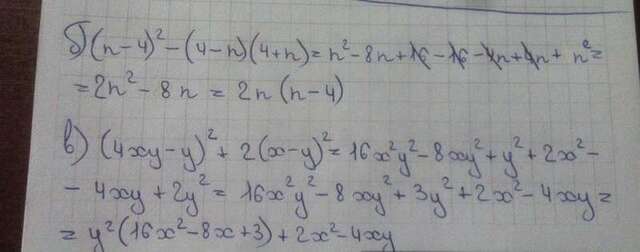 б) (n-4)² - (4-n)(4+n) = n² - 8n + 16 - 16 - 4n + 4n + n² =
= 2n² - 8n = 2n (n-4)
в) (4xy-y)² + 2(x-y)² = 16x²y² - 8xy² + y² + 2x² -
- 4xy + 2y² = 16x²y² - 8xy² + 3y² + 2x² - 4xy =
= y² (16x² - 8x + 3) + 2x² - 4xy